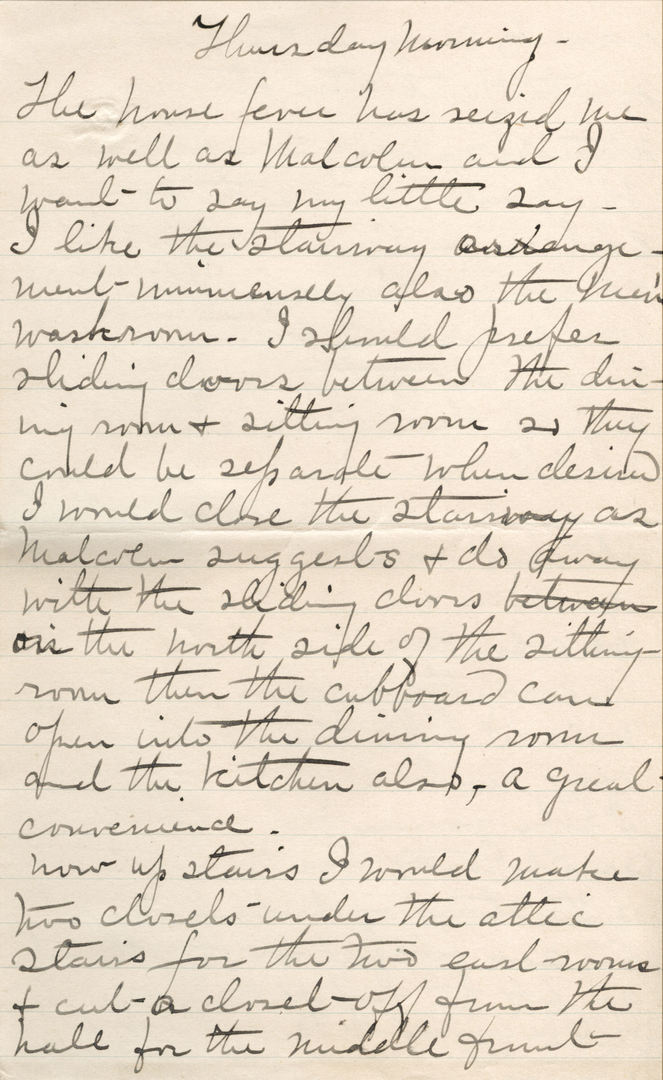 Thursday Morning -
The house fever has seizid me
as well as Malcolm and I
want to say my little say -
I like the stairway arrange-
ment immensely also the Men's
washroom. I should prefer
sliding doors between the din-
ing room & sitting room so they
could be separate when desired
I would close the stairway as
Malcolm suggests & do away
with the sliding doors between
on the north side of the sitting-
room then the cubboard can
open into the dining room
and the kitchen also, - a great
convenience.
now up stairs I would make
two closets under the attic
stairs for the two east rooms
& cut a closet off from the
hall for the middle front